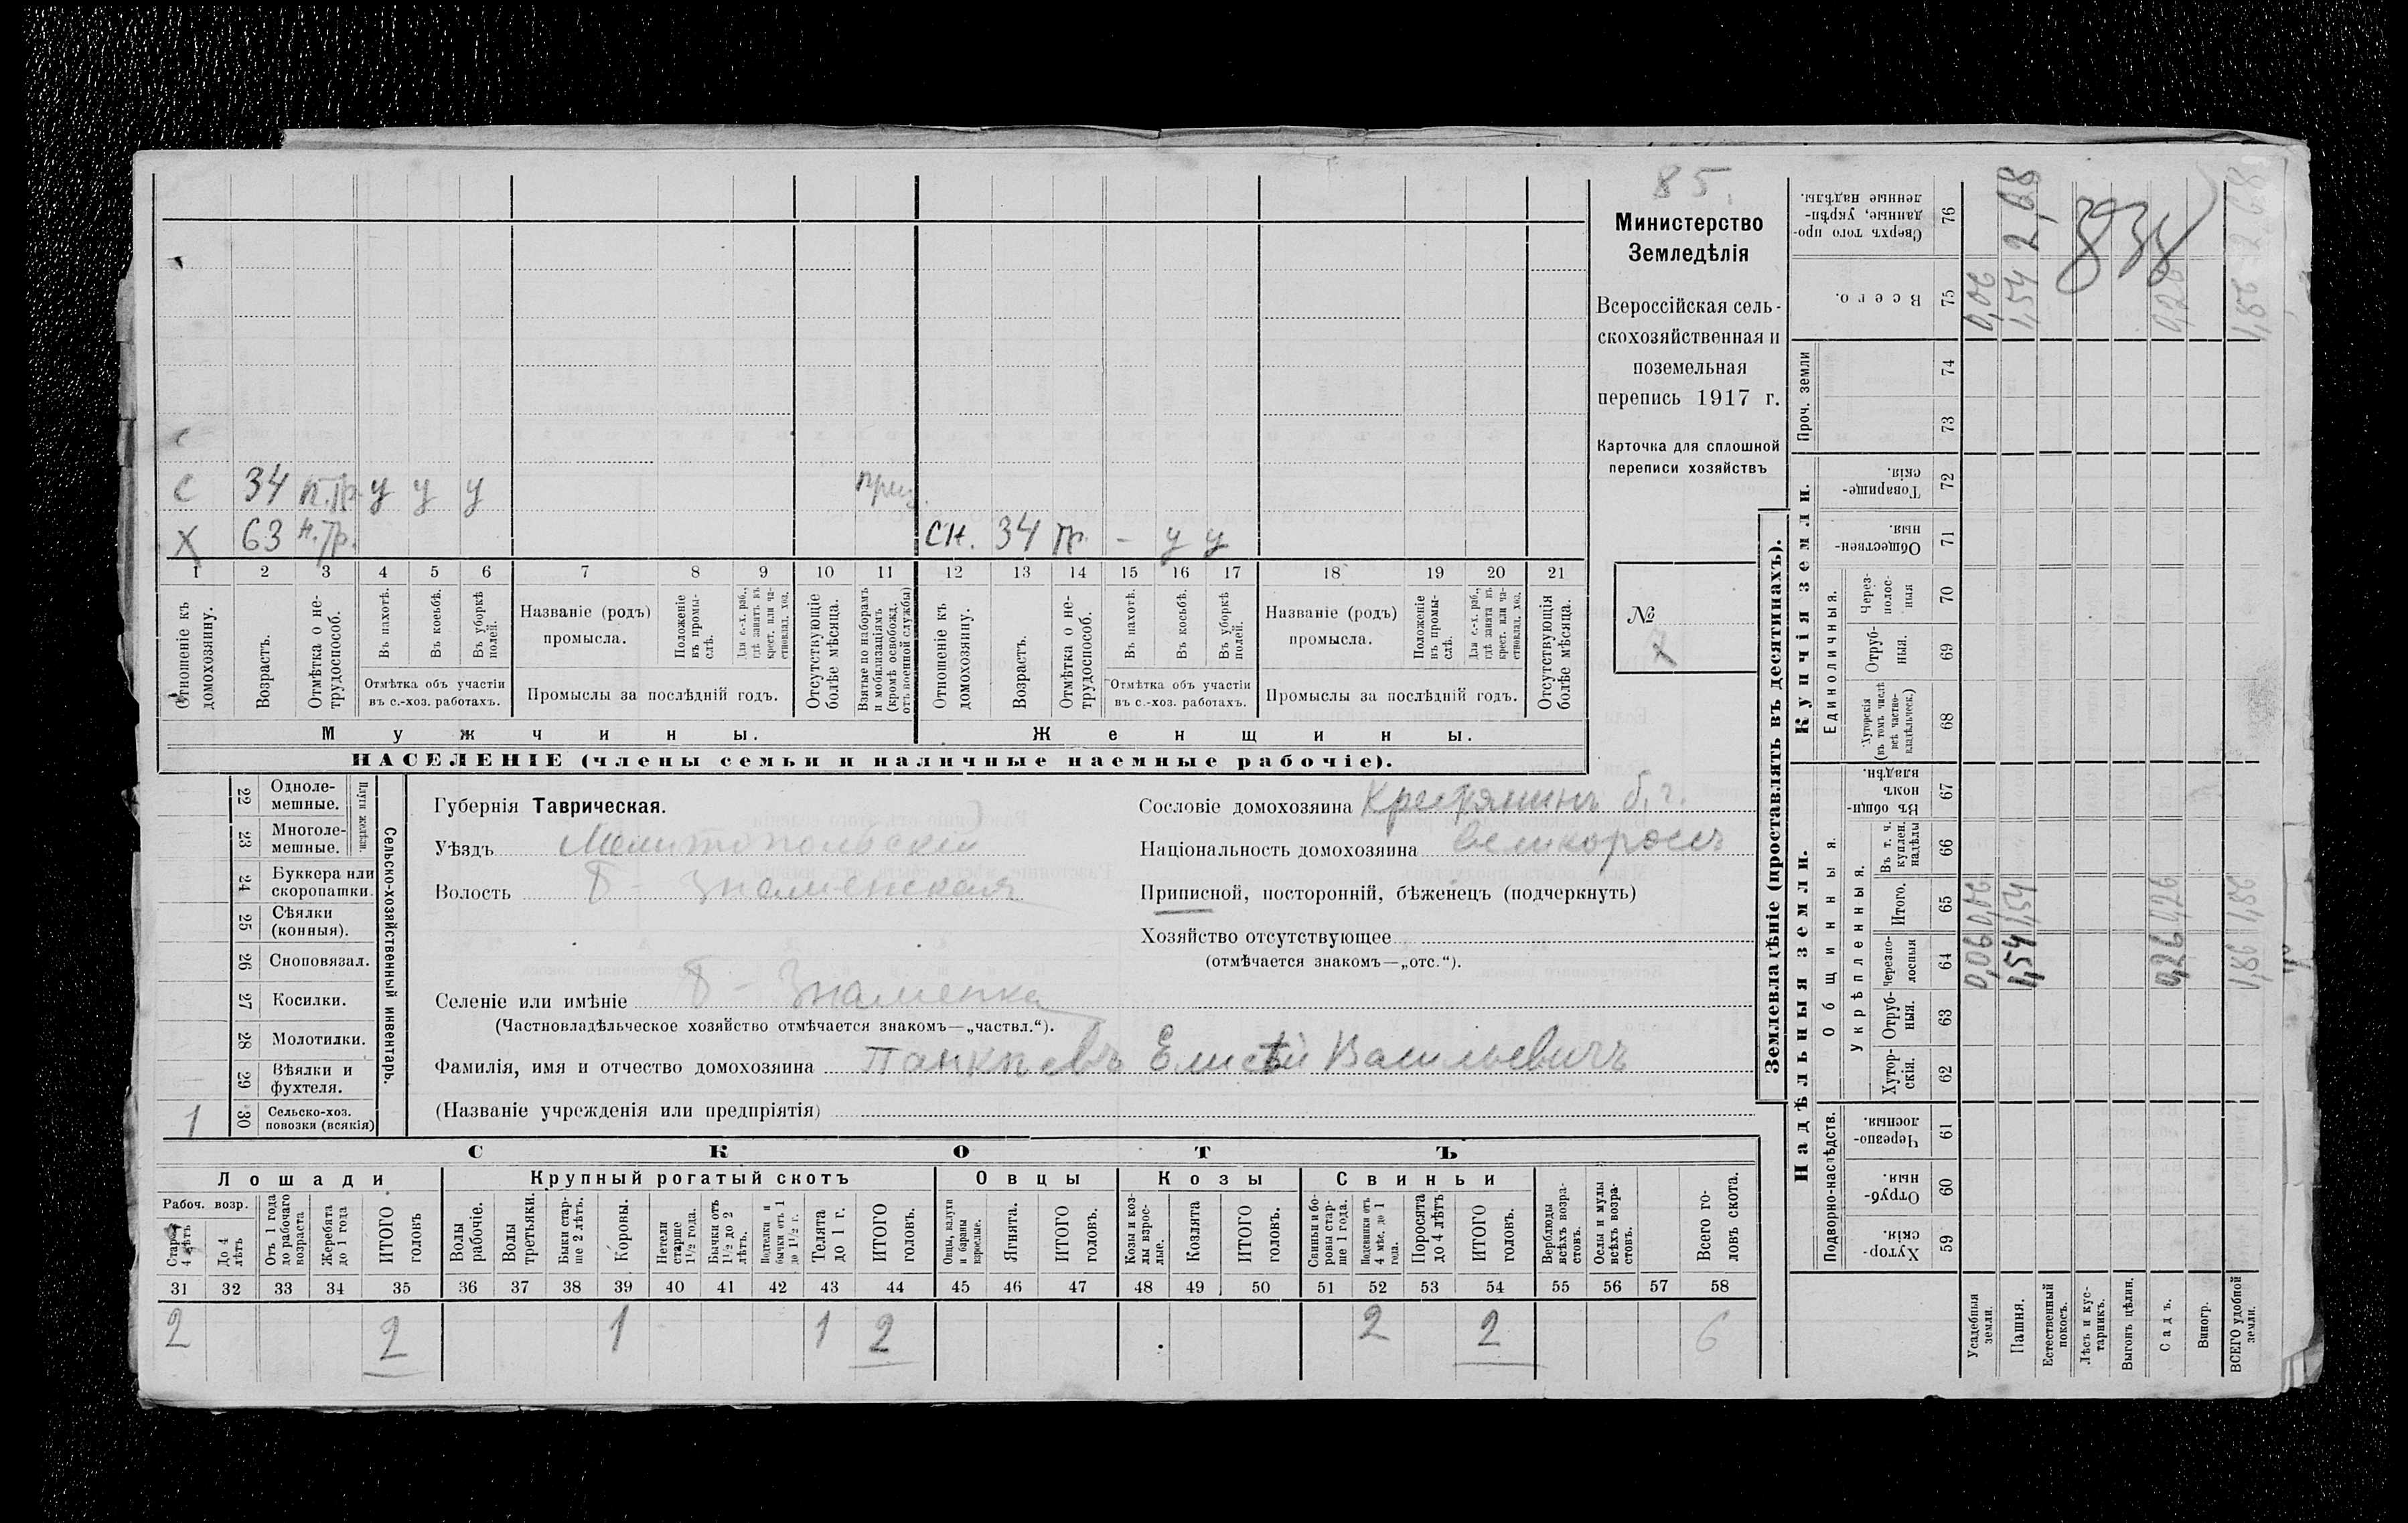 85.
Министерство
Земледѣлія
Всероссійская сель-
скохозяйственная и
поземельная
перепись 1917 г.
Карточка для сплошной
переписи хозяйствъ
№
х
С 34 п.тр. у у у приз.
Х 63 н.тр. сн. 34 тр. - у у
1 2 3 4 5 6 7 8 9 10 11 12 13 14 15 16 17 18 19 20 21
Отношеніе къ домохозяину.
Возрастъ.
Отмѣтка о не-трудоспособ.
Въ пахотѣ.
Въ косьбѣ.
Въ уборкѣ полей.
Отмѣтка объ участіи
въ с.-хоз. работахъ.
Названіе (родъ)
промысла.
Положеніе въ промы-слѣ.
Для с.-х. раб., гдѣ занятъ въ крест. или ча-стновлад. хоз.
Промыслы за послѣдній годъ.
Отсутствующіе болѣе мѣсяца.
Взятые по наборамъ и мобилизаціямъ (кромѣ освобожд. отъ военной службы)
Отношеніе къ домохозяину.
Возрастъ.
Отмѣтка о не-трудоспособ.
Въ пахотѣ.
Въ косьбѣ.
Въ уборкѣ полей.
Отмѣтка объ участіи
въ с.-хоз. работахъ.
Названіе (родъ)
промысла.
Положеніе въ промы-слѣ.
Для с.-х. раб., гдѣ занята въ крест. или ча-стновлад. хоз.
Промыслы за послѣдній годъ.
Отсутствующія болѣе мѣсяца.
Мужчины. Женщины.
НАСЕЛЕНІЕ (члены семьи и наличные наемные рабочіе).
Сельско-хозяйственный инвентарь.
Плуги желѣзн.
22 Одноле-мешные.
23 Многоле-мешные.
24 Буккера или скоропашки.
25 Сѣялки (конныя).
26 Сноповязал.
27 Косилки.
28 Молотилки.
29 Вѣялки и фухтеля.
1 30 Сельско-хоз. повозки (всякія)
Губернія Таврическая.
Уѣздъ Мелитопольскій
Волость Б-Знаменская
Селеніе или имѣніе Б-Знаменка
(Частновладѣльческое хозяйство отмѣчается знакомъ—„частвл.“).
Фамилія, имя и отчество домохозяина Панкѣевъ Елисѣй Васильевичъ
(Названіе учрежденія или предпріятія)
Сословіе домохозяина Крестьянинъ б. г.
Національность домохозяина великороссъ
Приписной, посторонній, бѣженецъ (подчеркнуть)
Хозяйство отсутствующее
(отмѣчается знакомъ—„отс.“).
СКОТЪ
Лошади Крупный рогатый скотъ Овцы Козы Свиньи
Рабоч. возр.
Старше 4 лѣтъ
До 4 лѣтъ
Отъ 1 года до рабочаго возраста
Жеребята до 1 года
ИТОГО головъ
Волы рабочіе.
Волы третьяки.
Быки стар-ше 2 лѣтъ.
Коровы.
Нетели старше 1½ года.
Бычки отъ 1½ до 2 лѣтъ.
Подтелки и бычки отъ 1 до 1½ г.
Телята до 1 г.
ИТОГО головъ.
Овцы, валухи и бараны взрослые.
Ягнята.
ИТОГО головъ.
Козы и коз-лы взрос-лые.
Козлята
ИТОГО головъ.
Свиньи и бо-ровы стар-ше 1 года.
Подсвинки отъ 4 мѣс. до 1 года.
Поросята до 4 лѣтъ
ИТОГО головъ.
Верблюды всѣхъ возра-стовъ.
Ослы и мулы всѣхъ возра-стовъ.
Всего го-ловъ скота.
31 32 33 34 35 36 37 38 39 40 41 42 43 44 45 46 47 48 49 50 51 52 53 54 55 56 57 58
2 2 1 1 2 2 2 6
Землевладѣніе (проставлять въ десятинахъ).
Надѣльныя земли.
Купчія земли.
Проч. земли
Общинныя.
Укрѣпленныя.
Подворно-наслѣдств.
Единоличныя.
Сверхъ того про-данные, укрѣп-ленные надѣлы. 76
Всего. 75
74
73
Товарище-скія. 72
Обществен-ныя. 71
Через-полос-ныя 70
Отруб-ныя. 69
Хуторскія (въ томъ числѣ всѣ частно-владѣльческ.) 68
Въ общин-номъ владѣн. 67
Въ т. ч. куплен. надѣлы 66
Итого. 65
Черезпо-лосныя 64
Отруб-ныя. 63
Хутор-скія. 62
Черезпо-лосныя. 61
Отруб-ныя. 60
Хутор-скія. 59
Усадебныя земли. 0,06 0,06 0,06
Пашня. 1,54 1,54 1,54 2,68
Естественный покосъ.
Лѣсъ и кус-тарникъ.
Выгонъ цѣлин.
Садъ. 0,26 0,26 0,26
Виногр.
ВСЕГО удобной земли. 1,86 1,86 1,86 2,68